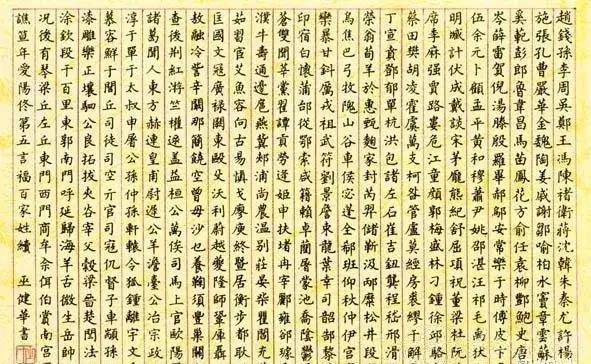 趙錢孫李周吳鄭王馮陳褚衛蔣沈韓朱秦尤許楊
施張孔曹嚴華金魏陶姜戚謝鄒喻柏水竇章雲蘇
奚範彭郎魯韋昌馬苗鳳花方俞任袁柳酆鮑史唐
岑薛雷賀倪湯滕殷羅畢郝鄔安常樂于時傅皮卞
伍余元卜顧孟平黃和穆蕭尹姚邵湛汪祁毛禹狄
明臧計伏成戴談宋茅龐熊紀舒屈項祝董梁杜阮
席季麻强賈路婁危江童顏郭梅盛林刁鍾徐邱駱
蔡田樊胡凌霍虞萬支柯昝管盧莫經房裘繆干解
丁宣賁鄧郁單杭洪包諸左石崔吉鈕龔程嵇邢滑
榮翁荀羊於惠甄麴家封芮羿儲靳汲邴糜松井段
烏焦巴弓牧隗山谷車侯宓蓬全郗班仰秋仲伊宮
欒暴甘鈄厲戎祖武符劉景詹束龍葉幸司韶郜黎
印宿白懷蒲邰從鄂索咸籍賴卓藺屠蒙池喬陰鬱
蒼雙聞莘黨翟譚貢勞逄姬申扶堵冉宰酈雍郤璩
濮牛壽通邊扈燕冀郟浦尚農温别莊晏柴瞿閻充
茹習宦艾魚容向古易慎戈廖庾終暨居衡步都耿
匡國文寇廣禄闕東歐殳沃利蔚越夔隆師鞏厙聶
敖融冷訾辛闞那簡饒空曾毋沙乜養鞠須豐巢關
查後荆紅游竺權逯蓋益桓公萬俟司馬上官歐陽
諸葛聞人東方赫連皇甫尉遲公羊澹臺公冶宗政
淳于單于太叔申屠公孫仲孫軒轅令狐鍾離宇文
慕容鮮于閭丘司徒司空亓官司寇仉督子車顓孫
漆雕樂正壤駟公良拓拔夾谷宰父穀梁晉楚閆法
涂欽段干百里東郭南門呼延歸海羊舌微生岳帥
況後有琴梁丘左丘東門西門商牟佘佴伯賞南宮
譙笪年愛陽佟第五言福百家姓續 巫健華書